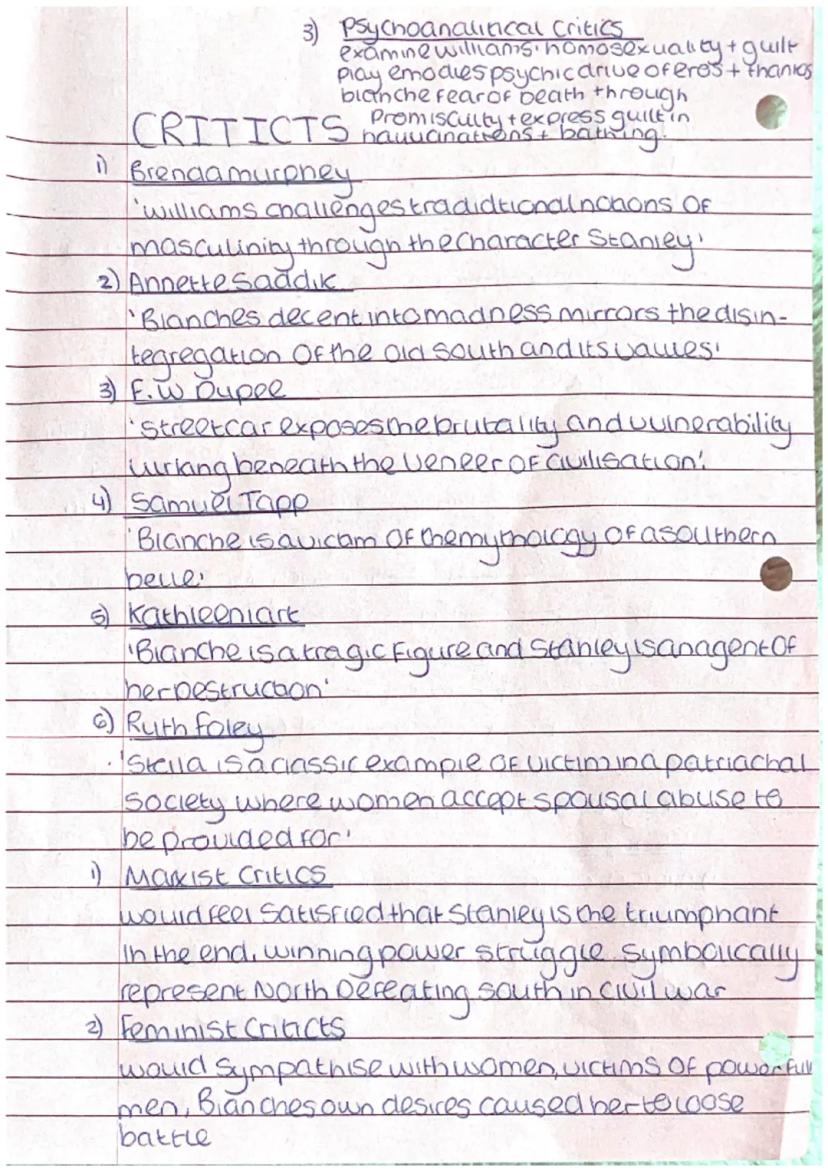 3) Psychoanalitical Critics
examine williams' homosexuality + guilt
play emodies psychic drive of eros + thanks
blanche fear of Death through
Promiscuity + express guilt in
haullcinations + bathing.
CRITICTS
1) Brenda murphey
'williams challenges tradidtional notions of
masculinity through the Character Stanley'
2) Annette Saddik
'Blanches decent into madness mirrors the disin-
tegregation of the old south and its values'
3) F.W Dupee
'streetcar exposes the brutality and vulnerability
lurking beneath the veneer of civilisation'.
4) Samuel Tapp
'Blanche is a victam of the mythology of a southern
belle'
5) Kathleen lart
'Blanche is a tragic figure and Stanley is an agent of
her Destruction'
6) Ruth foley
'Stella is a classic example of victim in a patriachal
society where women accept spousal abuse to
be provided for'
1) Marxist Critics
would feel satisfied that Stanley is the triumphant
in the end, winning power struggle. Symbolically
represent North Defeating south in civil war
2) feminist Criticts
would sympathise with women, victims of powerful
men, Blanches own desires caused her to loose
battle